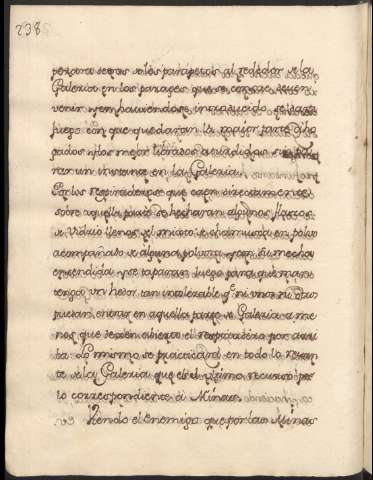 238
de los parapetos al rededor de la
Galeria en los parages que se
venir y en haviendose introducido se dara
fuego con que quedaran la mayor parte aho
gados y los mejor librados aturdidos sin pa
rar un instante en la Galeria.
Por los respiraderos que caen directamente
sobre aquella parte se hecharan algunos frascos
de vidrio llenos de mixto
acompañado de alguna polvora y con su mecha
encendida y se taparan luego para que man
tenga un hedor tan intolerable q.e ni unos ni otros
puedan entrar en aquella parte de Galeria a me
nos que dexen abierto el respiradero por arri
ba. Lo mismo se practicará en todo lo restan
te de la Galeria que es el ultimo recurso
lo correspondiente à Minas.
Viendo el Enemigo que por las Minas